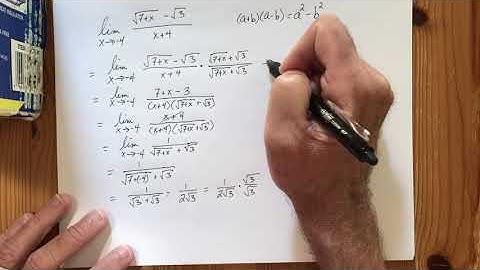 lim x→-4 (√(7+x) - √3)/(x+4)
(a+b)(a-b) = a² - b²
= lim x→-4 (√(7+x) - √3)/(x+4) · (√(7+x) + √3)/(√(7+x) + √3)
= lim x→-4 (7+x-3)/((x+4)(√(7+x) + √3))
= lim x→-4 (x+4)/((x+4)(√(7+x) + √3))
= lim x→-4 1/(√(7+x) + √3)
= 1/(√(7+(-4)) + √3)
= 1/(√3 + √3) = 1/(2√3) = 1/(2√3) · √3/√3